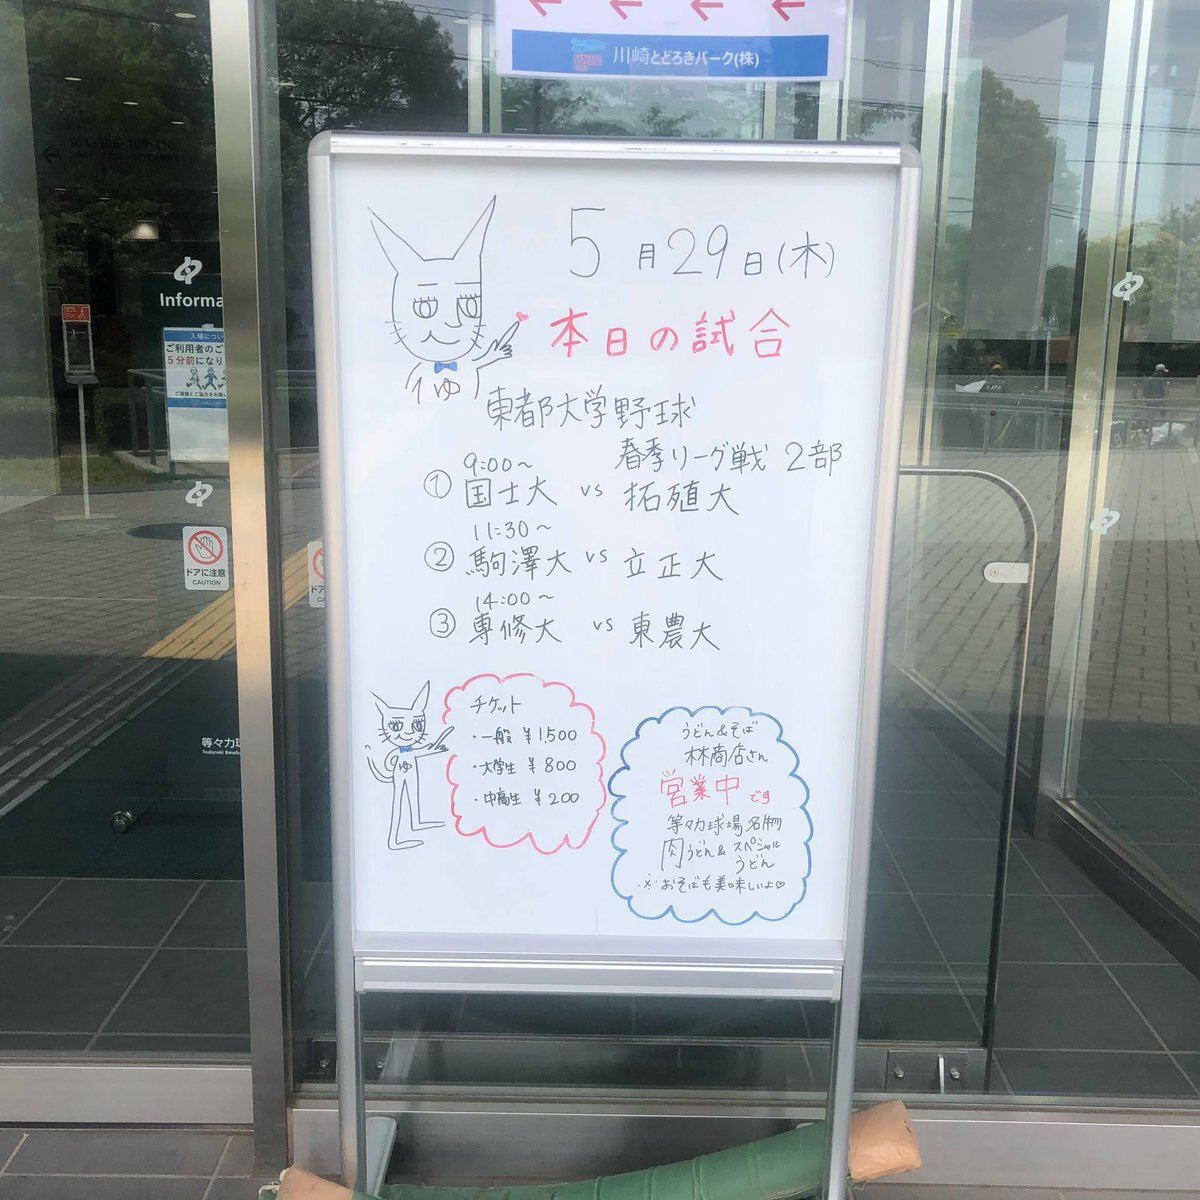 川崎とどろきパーク(株)
5月29日(木)
本日の試合
東都大学野球
春季リーグ戦 2部
9:00〜
① 国士大 vs 拓殖大
11:30〜
② 駒澤大 vs 立正大
14:00〜
③ 専修大 vs 東農大
チケット
・一般 ¥1,500
・大学生 ¥800
・中高生 ¥200
うどん&そば
林商店さん
営業中です
等々力球場名物
肉うどん&スペシャルうどん
※おそばも美味しいよ♡
Informa
入場につい
ご利用者のご
5分前になり
ドアに注意
CAUTION
等々力球
Todoroki Baseb